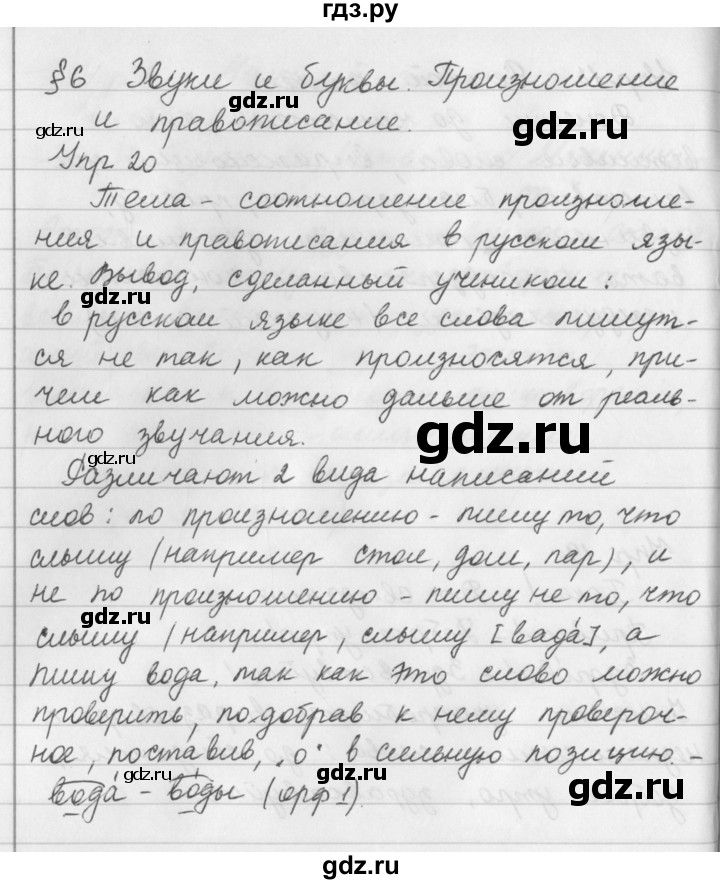 гдз.ру
§6 Звуки и буквы. Произношение
gdz.ru
gdz.ru
и правописание.
gdz.ru
Упр 20
Тема - соотношение произноше-
ния и правописания в русском язы-
ке. Вывод, сделанный учеником:
gdz.ru
в русском языке все слова пишут-
ся не так, как произносятся, при-
чем как можно дальше от реаль-
ного звучания.
gdz.ru
gdz.ru
Различают 2 вида написаний
слов: по произношению - пишу то, что
слышу (например стол, дом, пар), и
не по произношению - пишу не то, что
gdz.ru
слышу (например, слышу [вада́], а
пишу вода, так как это слово можно
gdz.ru
проверить, подобрав к нему провероч-
ное, поставив "о" в сильную позицию -
gdz.ru
вода́ - во́ды (орф 1).
gdz.ru
gdz.ru